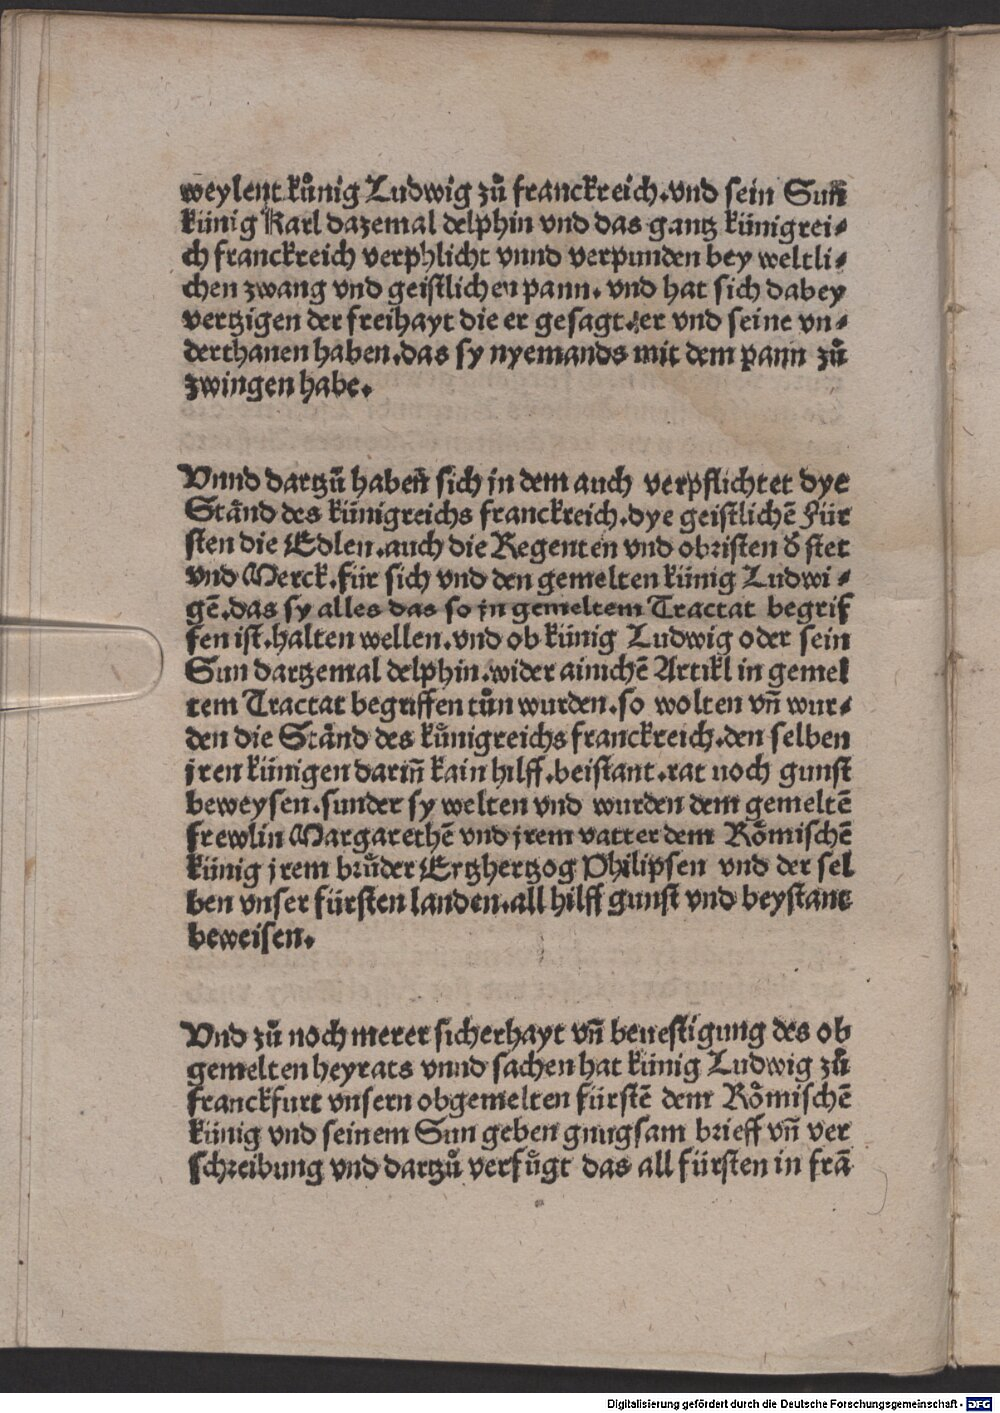 weylent kůnig Ludwig zů franckreich.vnd sein Sun̄
künig Karl dazemal delphin vnd das gantz künigrei⸗
ch franckreich verphlicht vnnd verpunden bey weltli⸗
chen zwang vnd geistlichen pann. vnd hat sich dabey
vertzigen der freihayt die er gesagt.er vnd seine vn⸗
derthanen haben.das sy nyemands mit dem pann zů
zwingen habe.
Vnnd dartzů haben̄ sich in dem auch verpflichtet dye
Stånd des künigreichs franckreich.dye geistlichē Für
sten die Edlen.auch die Regenten vnd obristen d̄ stet
vnd Merck.für sich vnd den gemelten künig Ludwi⸗
gē.das sy alles das so jn gemeltem Tractat begrif
fen ist.halten wellen.vnd ob künig Ludwig oder sein
Sun dartzemal delphin.wider ainichē Artikl in gemel
tem Tractat begriffen tůn wurden.so wolten vn̄ wur⸗
den die Stånd des kůnigreichs franckreich.den selben
jren künigen darin̄ kain hilff.beistant.rat noch gunst
beweysen.sunder sy welten vnd wurden dem gemeltē
frewlin Margarethē vnd jrem vatter dem Rőmischē
künig jrem brůder Ertzhertzog Philipsen vnd der sel
ben vnser fürsten landen.all hilff gunst vnd beystant
beweisen.
Vnd zů noch merer sicherhayt vn̄ beuestigung des ob
gemelten heyrats vnnd sachen hat künig Ludwig zů
franckfurt vnsern obgemelten fürstē dem Rőmischē
künig vnd seinem Sun geben gnugsam brieff vn̄ ver
schreibung vnd dartzů verfůgt das all fürsten in frā
Digitalisierung gefördert durch die Deutsche Forschungsgemeinschaft - DFG